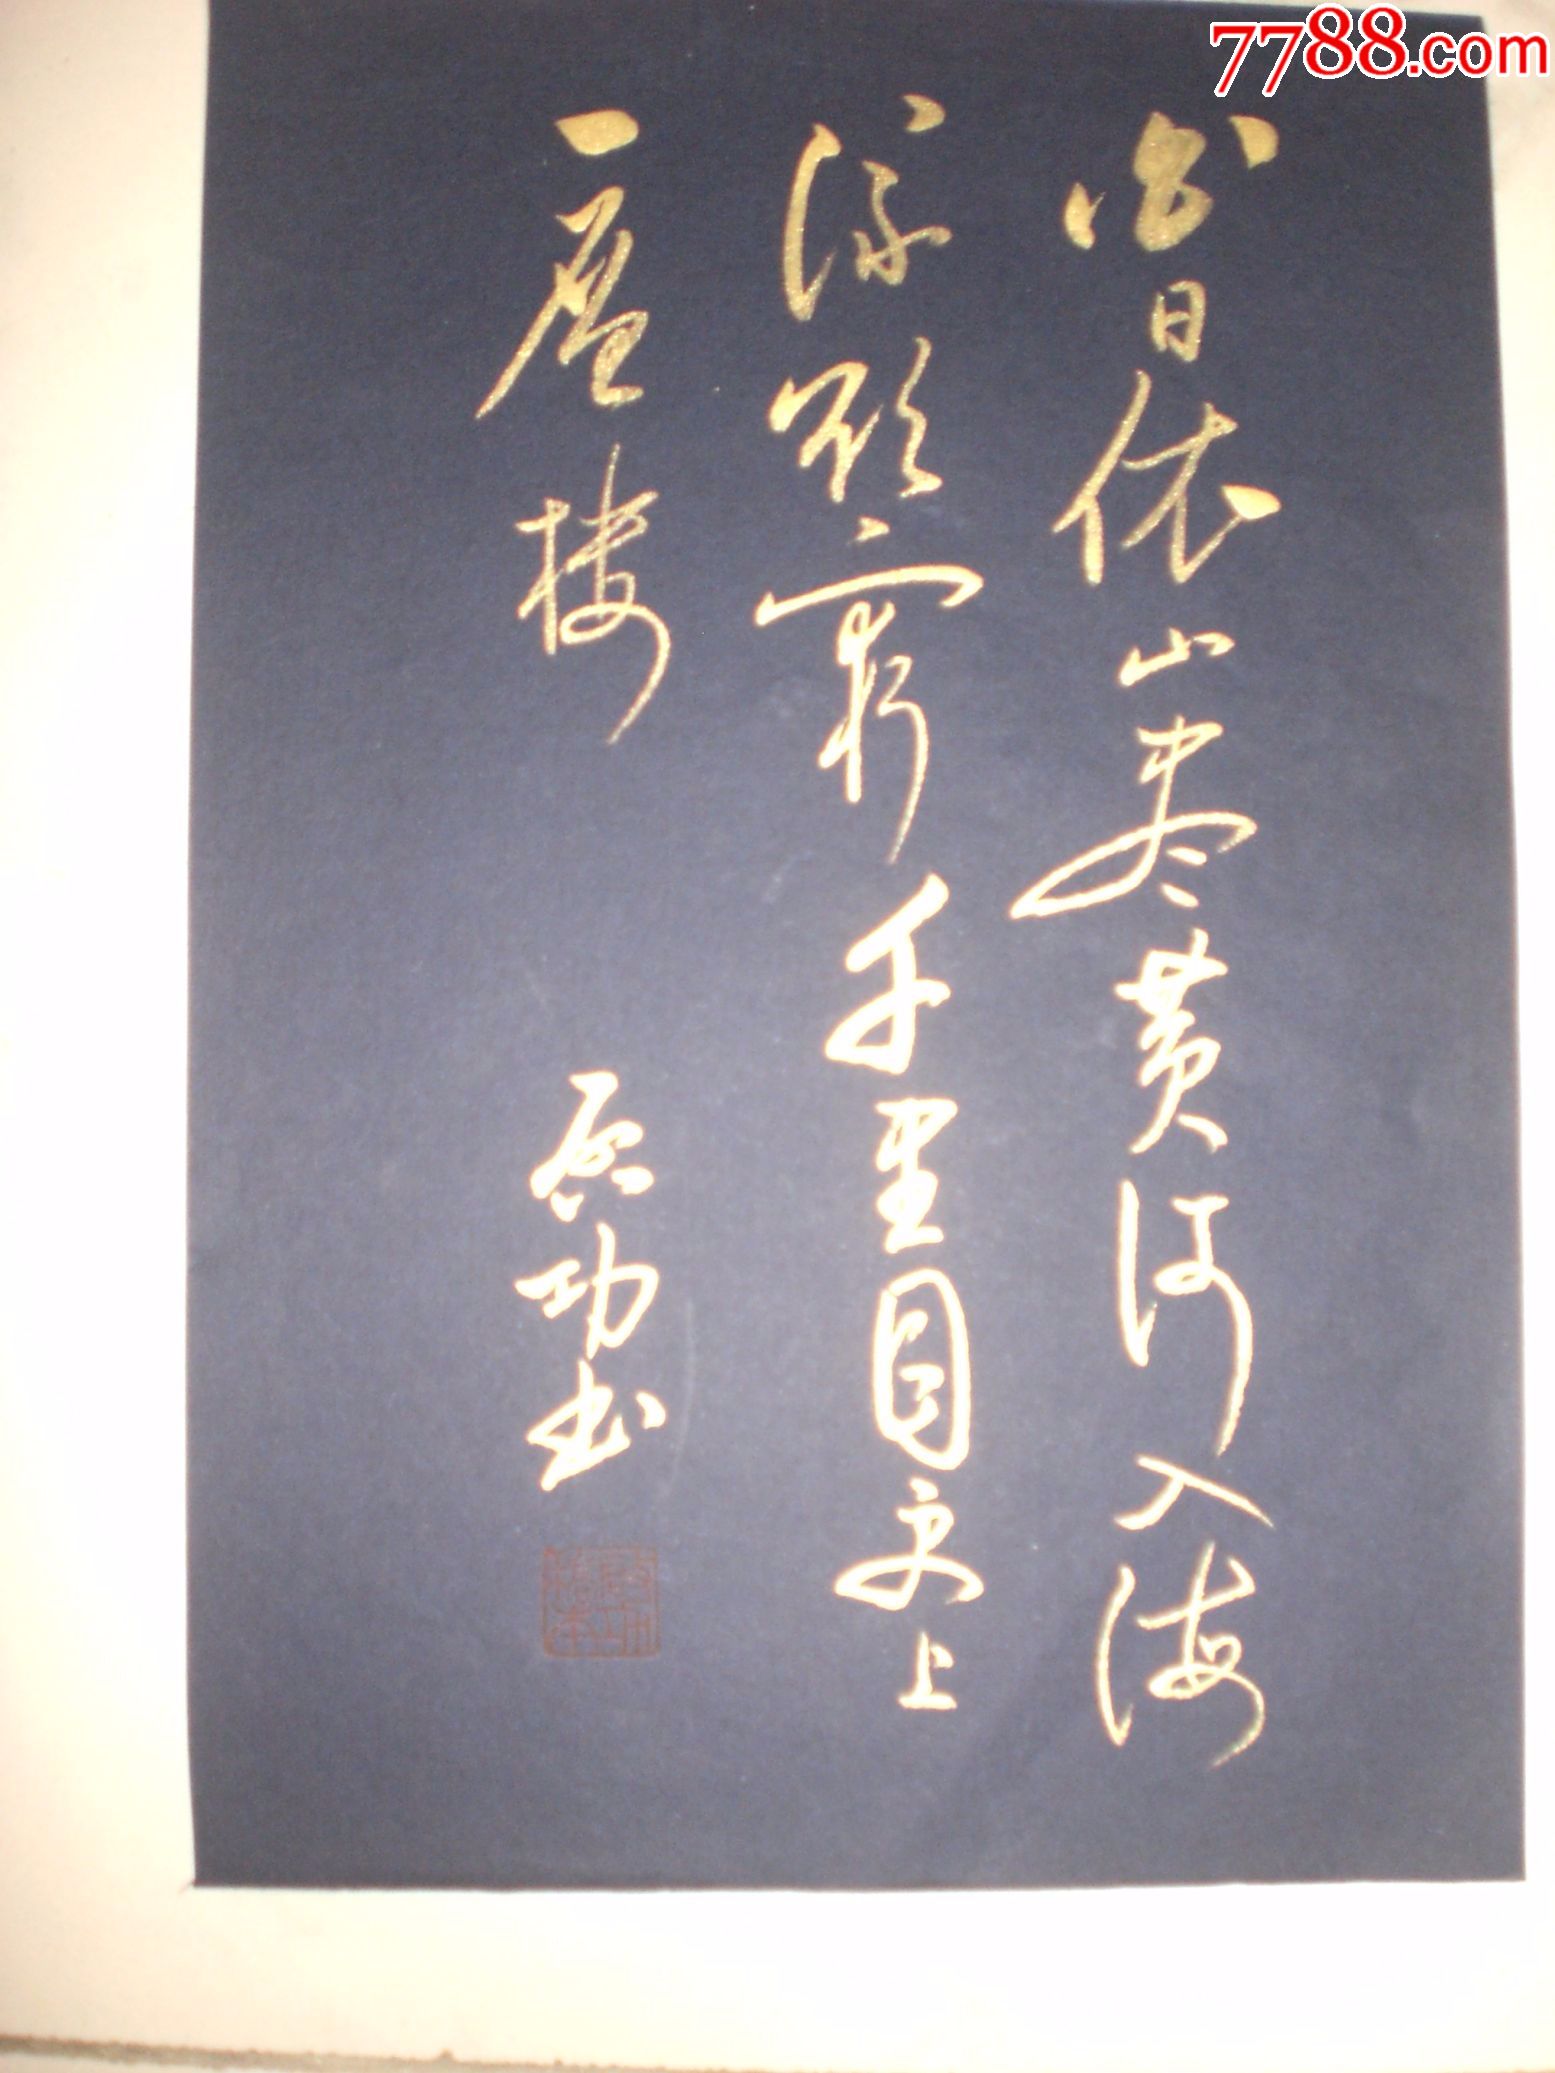 7788.com
白日依山盡黄河入海
流欲窮千里目更上
一層楼
启功书